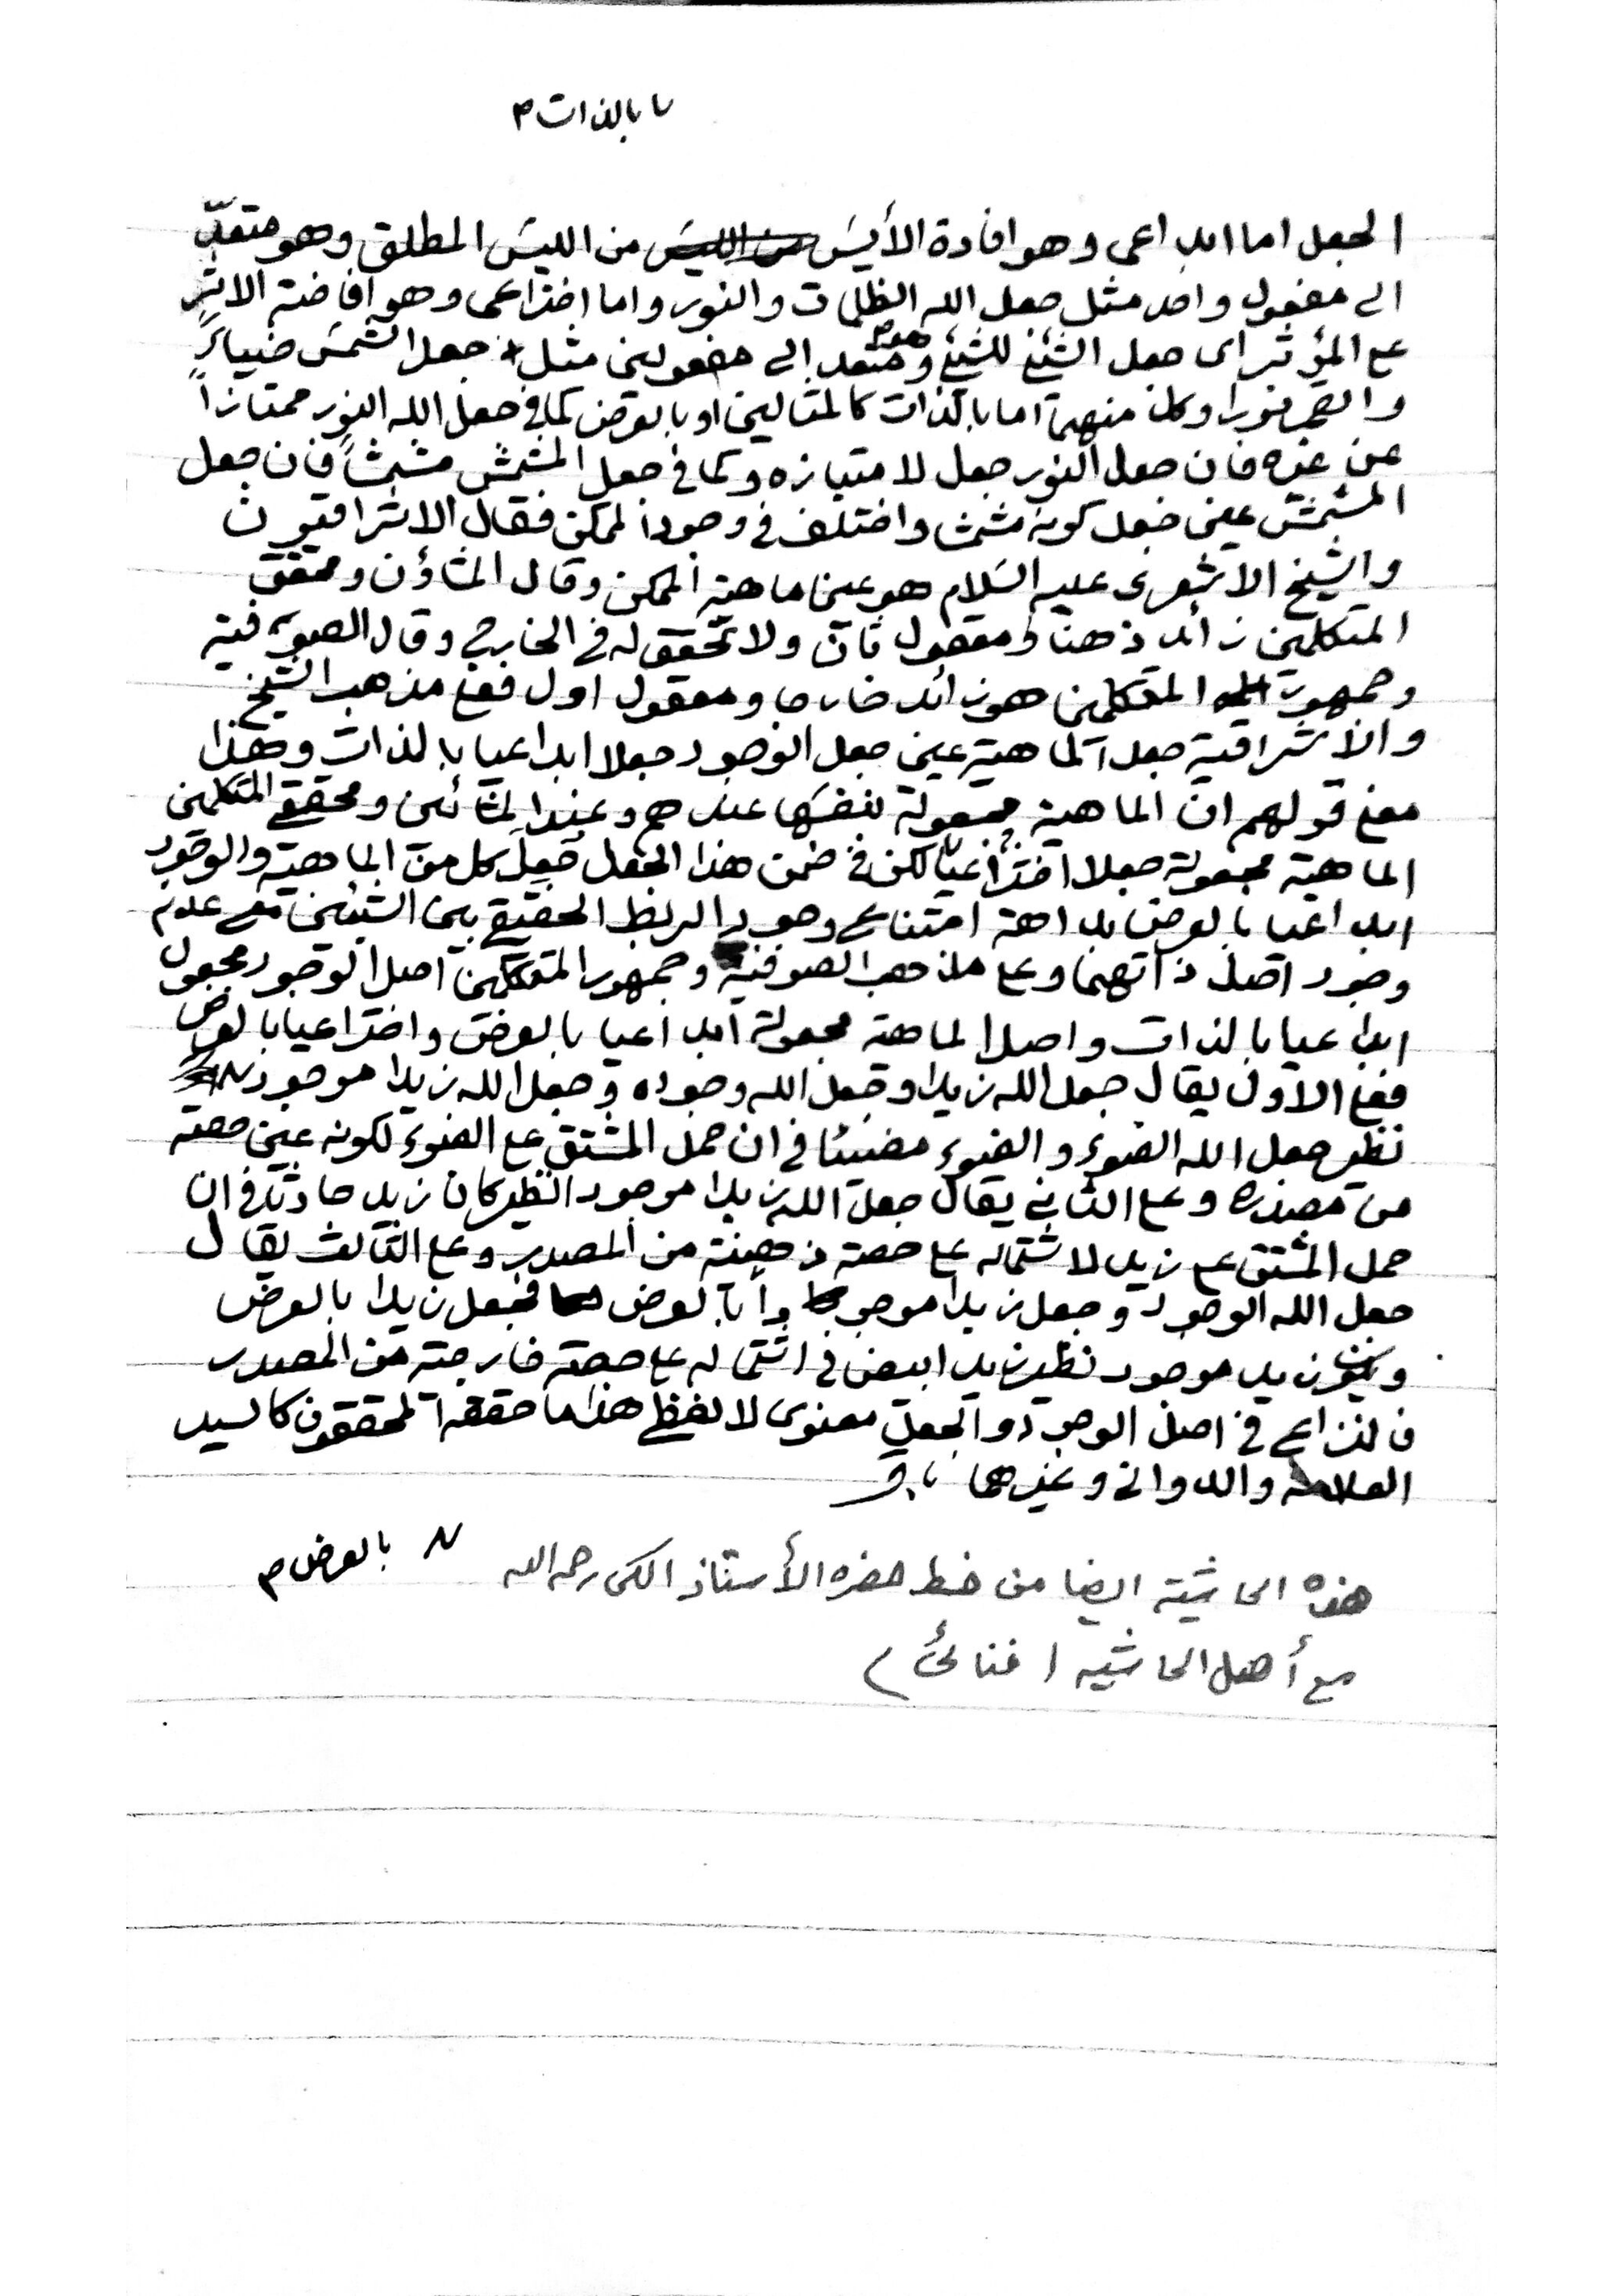 بالذات م
الجعل اما ابداعى وهو افادة الأيس من الليس من الليس المطلق وهو متعدّ
الى مفعول واحد مثل جعل الله الظلمات والنور واما اختراعى وهو افاضة الاثر
على المؤثر اى جعل الشئ للشئ وهو متعد الى مفعولين مثل جعل الشمس ضياءً
والقمر نورا وكل منهما اما بالذات كالمثالين او بالعرض كما فى جعل الله النور ممتازاً
عن غيره فان جعل النور جعل لامتيازه وكما فى جعل المشمش مشمشاً فان جعل
المشمش عين جعل كونه مشمشا واختلف فى وجود الممكن فقال الاشراقيون
والشيخ الاشعرى عليه السلام هو عين ماهية الممكن وقال المشاؤن ومحقق
المتكلمين زائد ذهنا ومعقول ثان ولا تحقق له فى الخارج وقال الصوفية
وجمهور المتكلمين هو زائد خارجا ومعقول اول فعلى مذهب الشيخ
والاشراقية جعل الماهية عين جعل الوجود جعلا ابداعيا بالذات وهذا
معنى قولهم ان الماهية مجعولة بنفسها عندهم وعند المشائين ومحققى المتكلمين
الماهية مجعولة جعلا اختراعيا لكن فى ضمن هذا الجعل جعل كل من الماهية والوجود
ابداعيا بالعرض بداهة امتناع وجود الربط الحقيقى بين الشيئين مع عدم
وجود اصل ذاتهما وعلى مذهب الصوفية وجمهور المتكلمين اصل الوجود مجعول
ابداعيا بالذات واصل الماهية مجعولة ابداعيا بالعرض واختراعيا بالعرض
فعلى الاول يقال جعل الله زيدا وجعل الله وجوده وجعل الله زيدا موجودا
نظير جعل الله الضوء والضوء مضيئا فى ان حمل المشتق على الضوء لكونه عين حصة
من مصدره وعلى الثانى يقال جعل الله زيدا موجودا نظير كان زيد حادثا فى ان
حمل المشتق على زيد لاشتماله على حصة ذهنية من المصدر وعلى الثالث يقال
جعل الله الوجود وجعل زيدا موجودا بالعرض فجعل زيدا بالعرض
ويكون زيد موجود نظير زيد ابيض فى اشتماله على حصة خارجية من المصدر
فالنزاع فى اصل الوجود والجعل معنوى لا لفظى هذا ما حققه المحققون كالسيد
العلامة والدوانى وغيرهما
بالعرض م
هذه الحاشية ايضا من خط حضره الأستاذ الكى رحمه الله
مع أهل الحاشيه